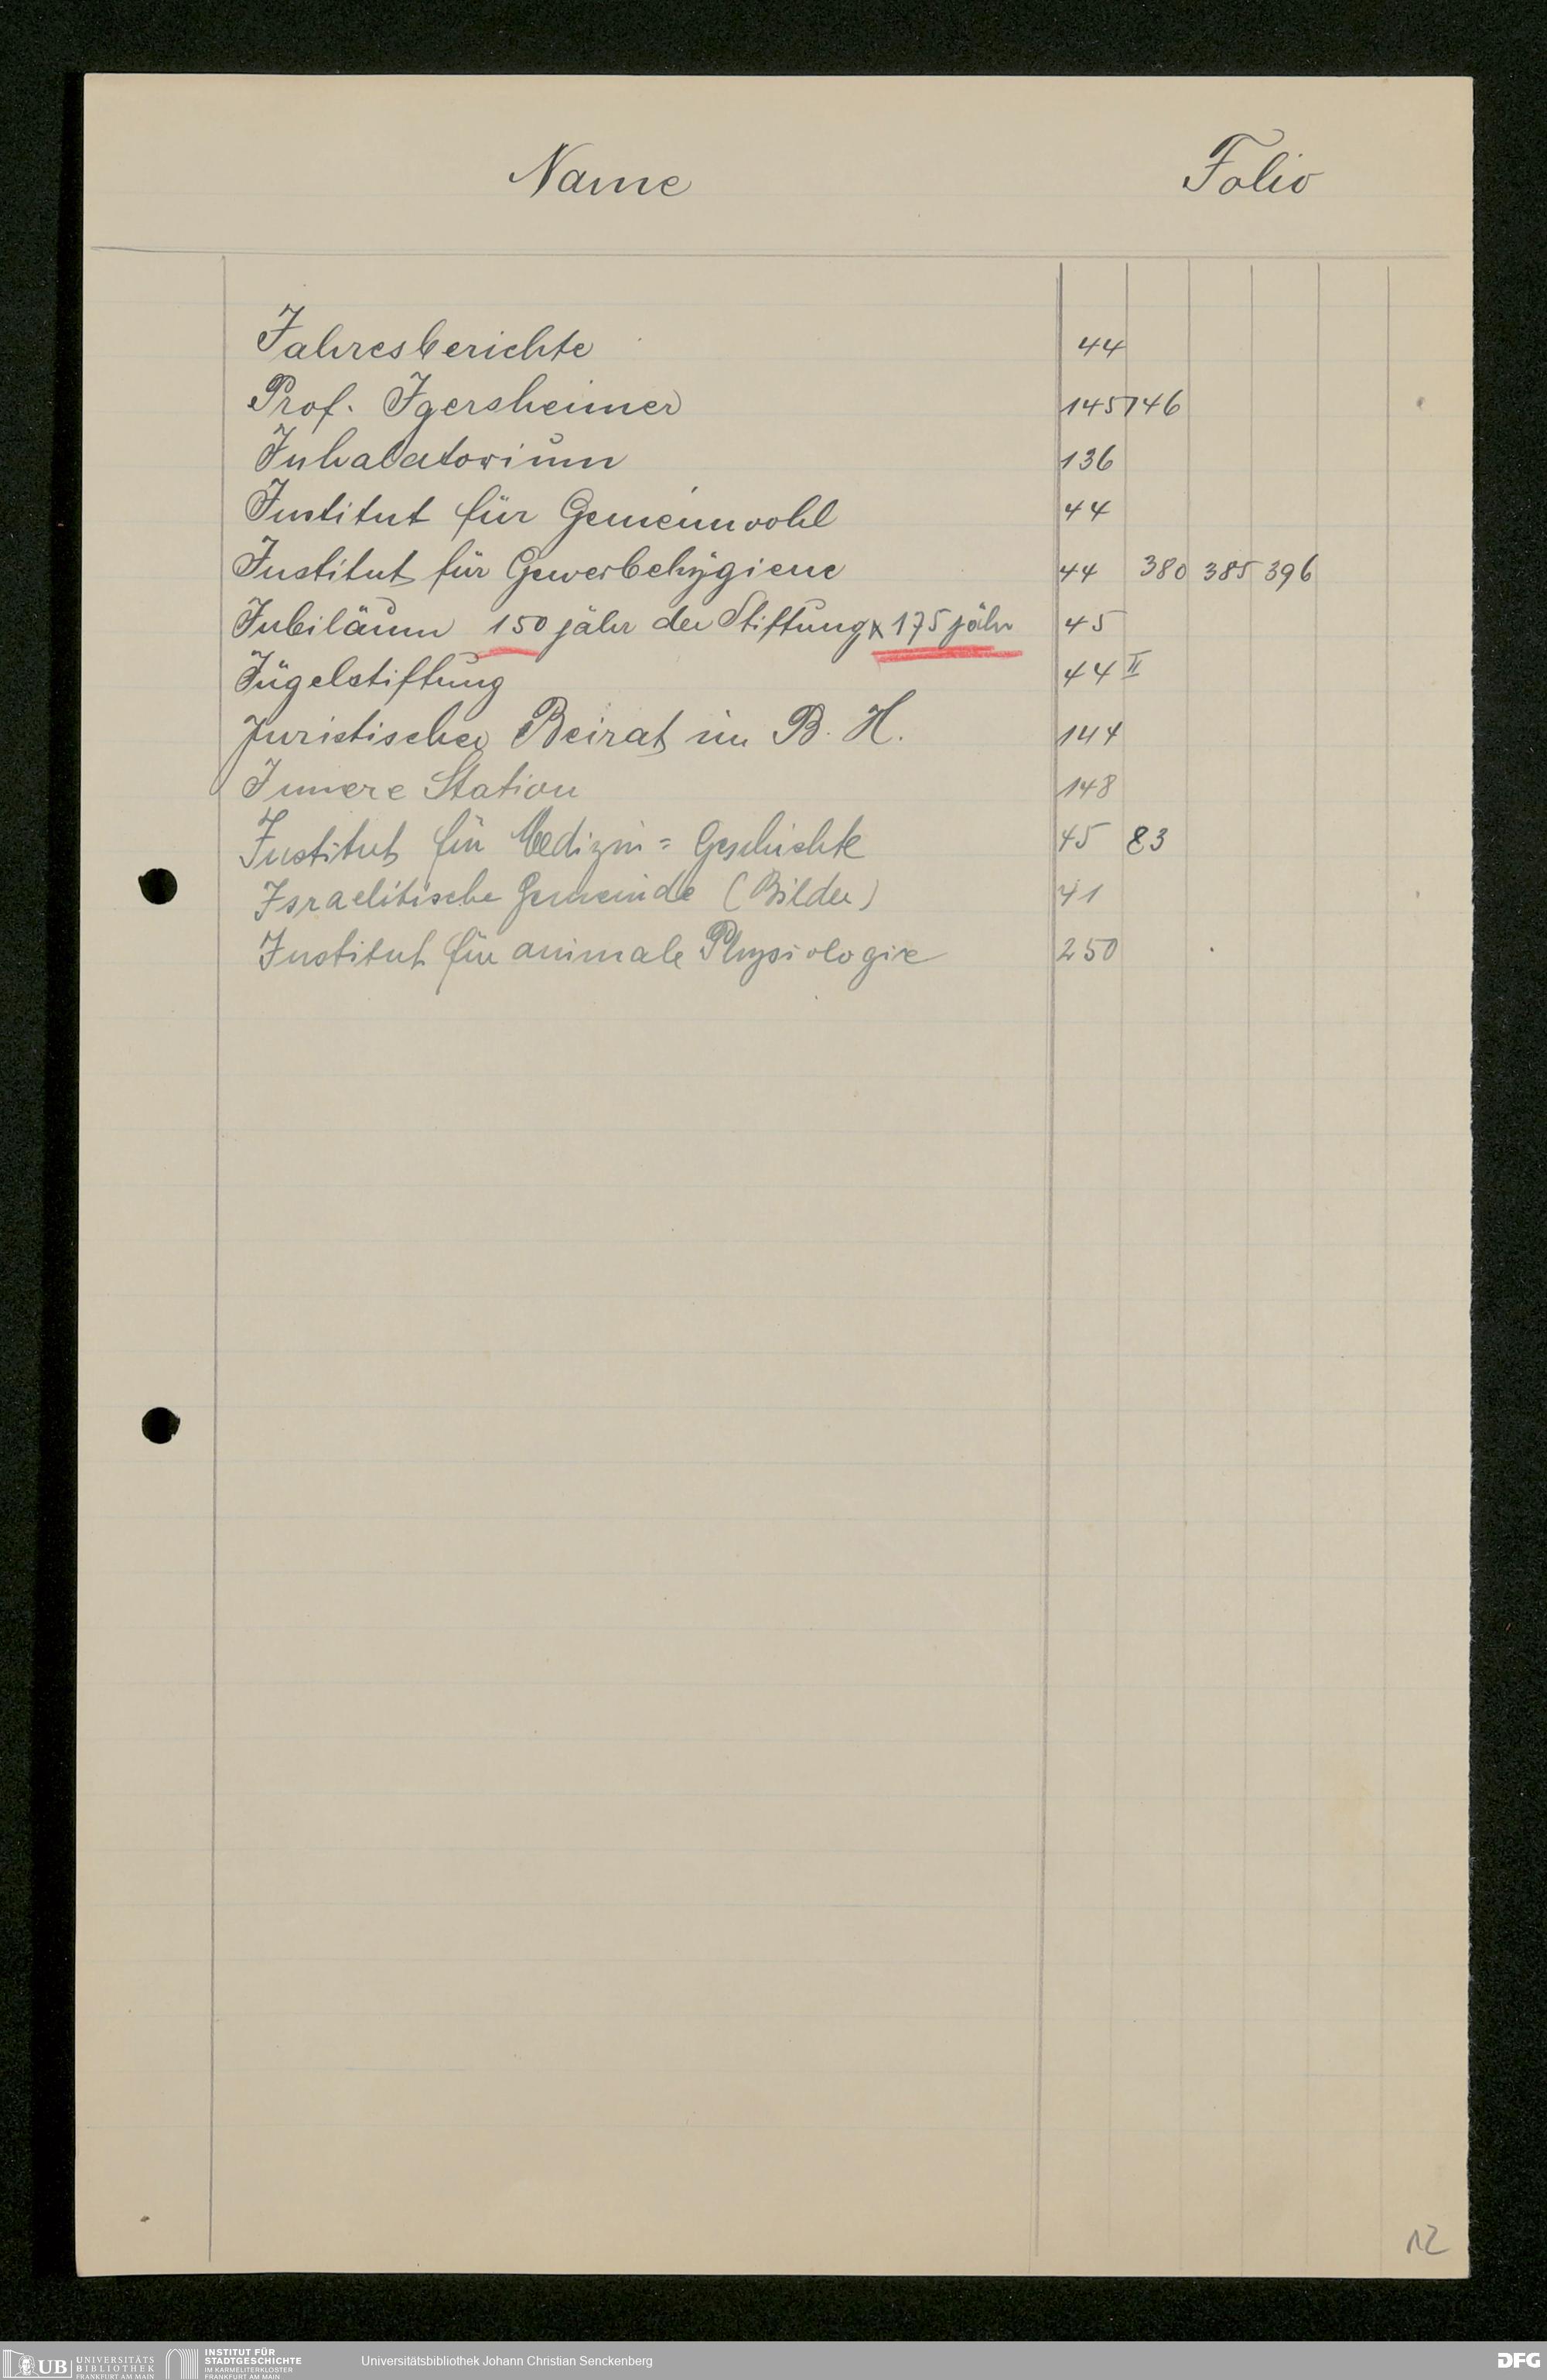 Name Folio
Jahresberichte 44
Prof. Igersheimer 145 146
Inhalatorium 136
Institut für Gemeinwohl 44
Institut für Gewerbehygiene 44 380 385 396
Jubiläum 150 jähr der Stiftung x 175 jähr 45
Jügelstiftung 44 II
Juristischer Beirat im B. H. 144
Innere Station 148
Institut für Medizin = Geschichte 45 83
Israelitische Gemeinde (Bilder) 41
Institut für animale Physiologie 250
12
UB UNIVERSITÄTS
BIBLIOTHEK
FRANKFURT AM MAIN
INSTITUT FÜR
STADTGESCHICHTE
IM KARMELITERKLOSTER
FRANKFURT AM MAIN
Universitätsbibliothek Johann Christian Senckenberg
DFG